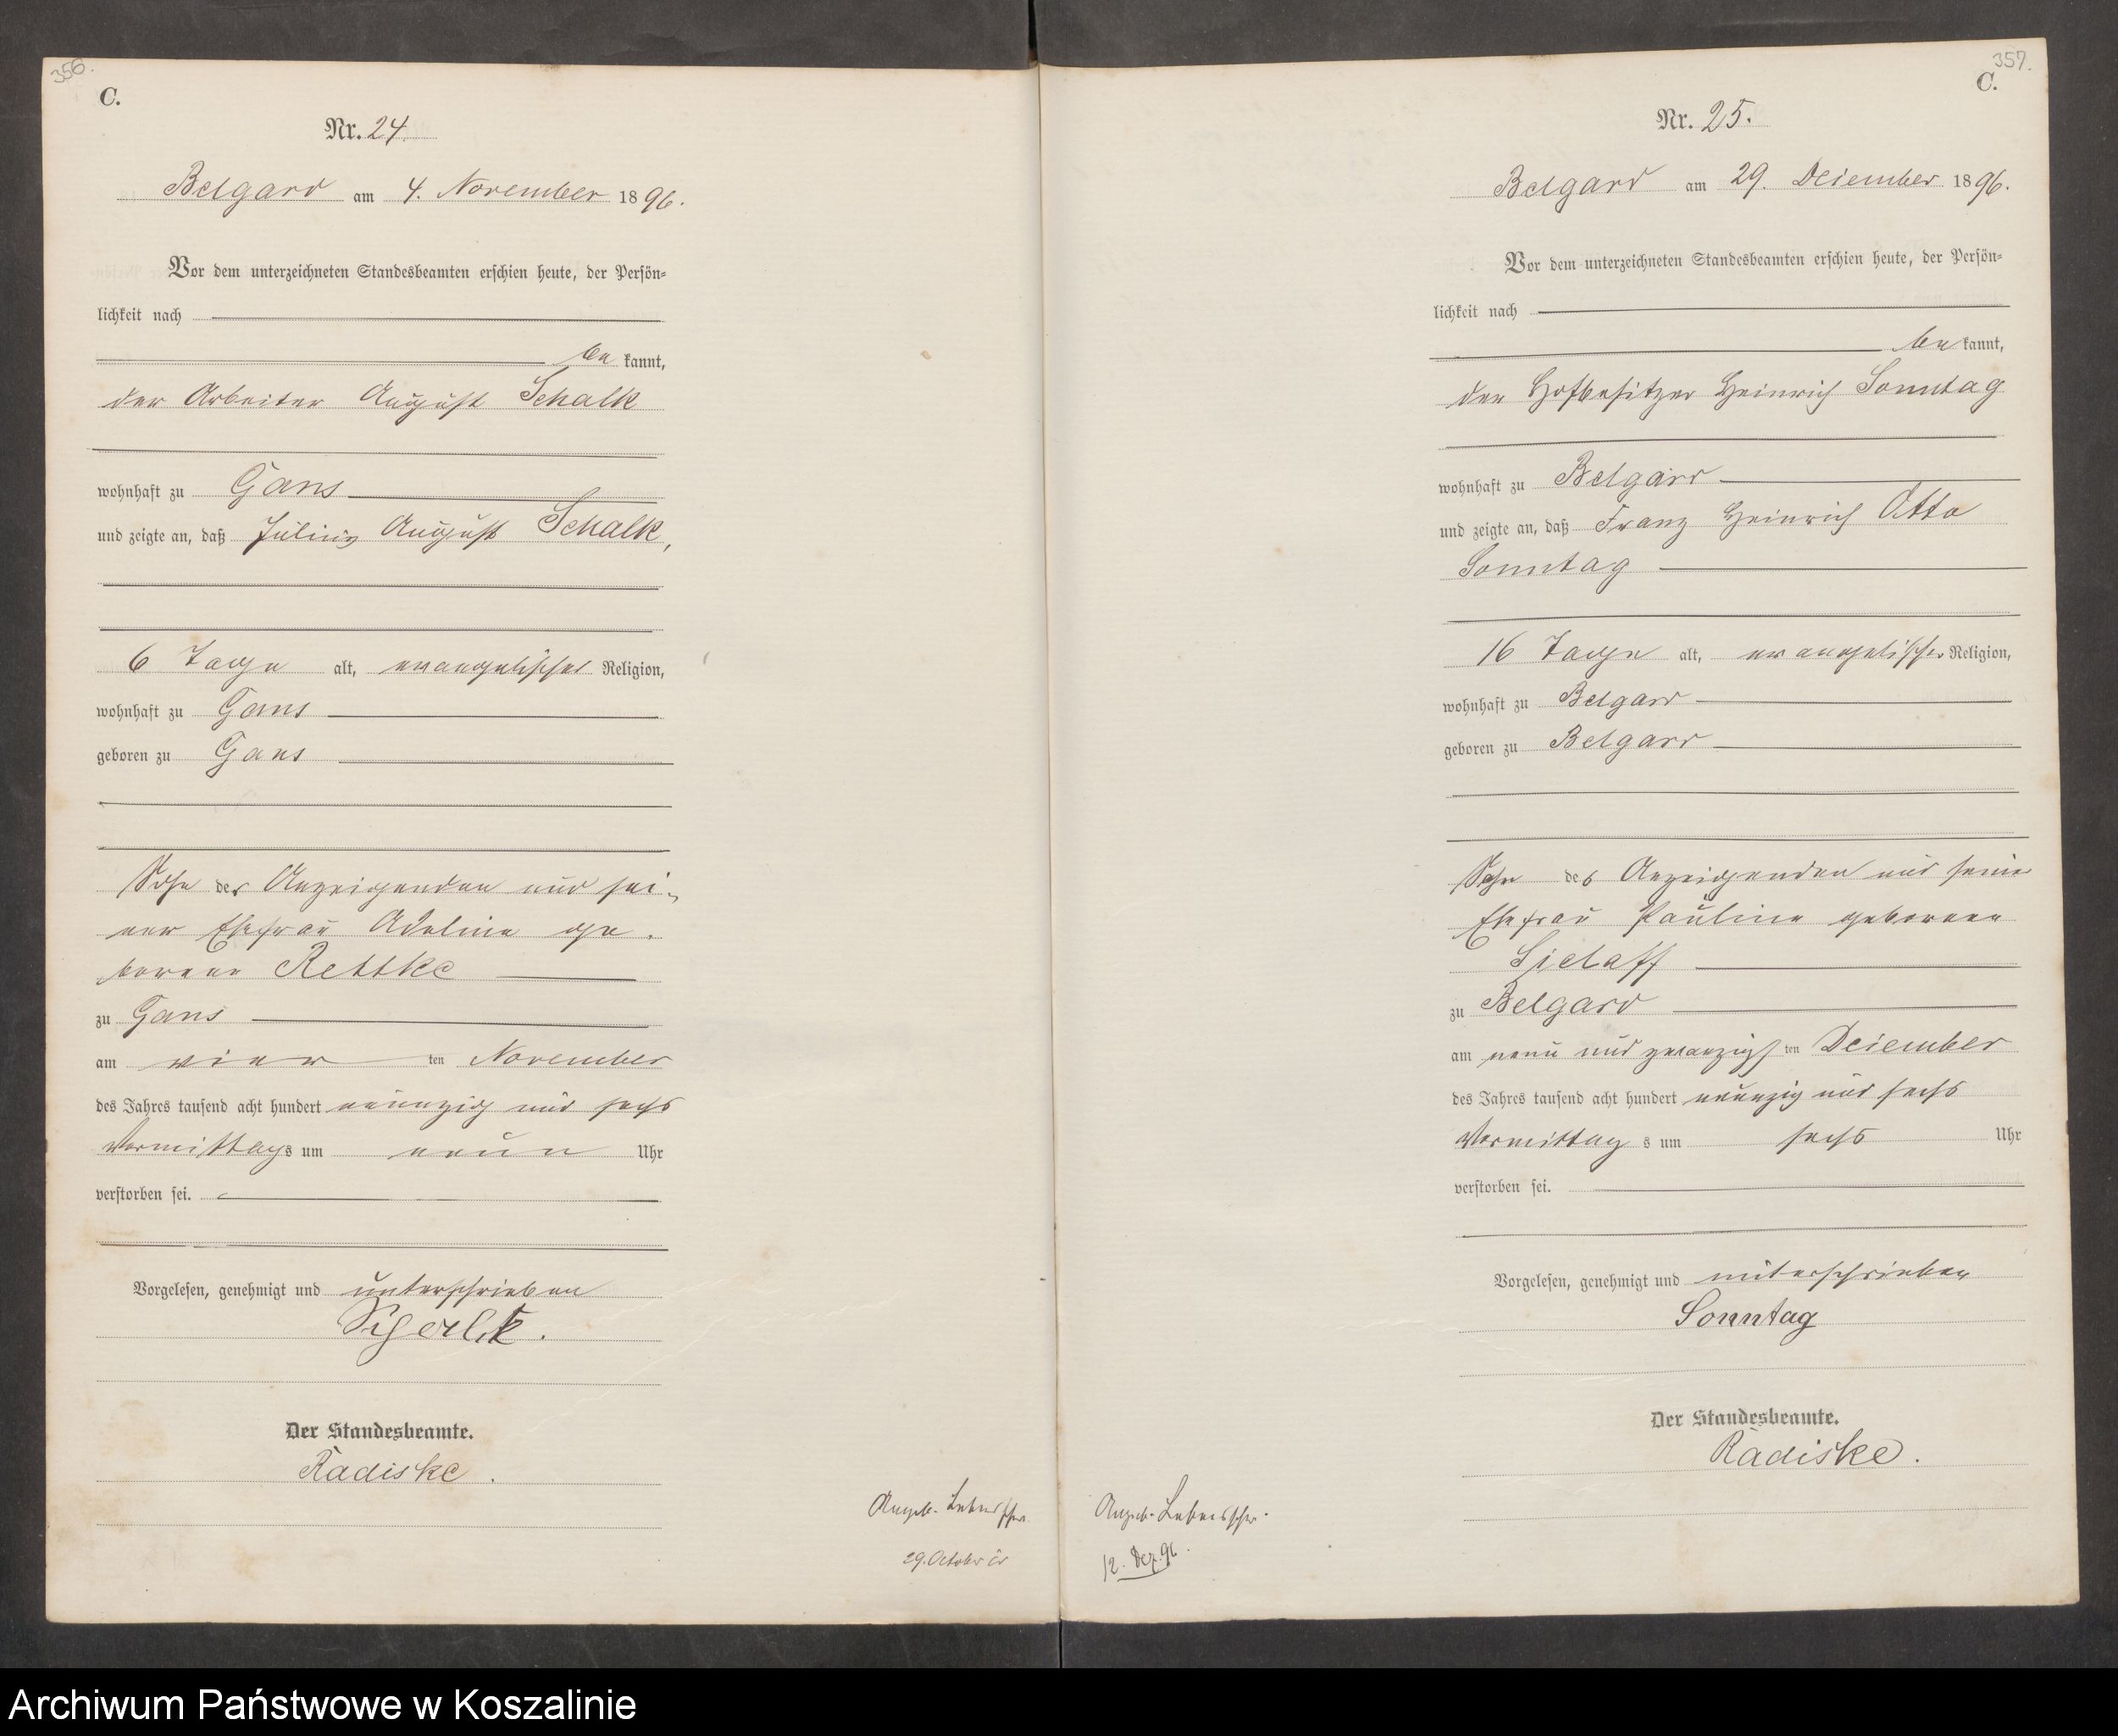 356.
C.
Nr. 24.
Belgard am 4. November 1896.
Vor dem unterzeichneten Standesbeamten erschien heute, der Persön-
lichkeit nach
be kannt,
der Arbeiter August Schalk
wohnhaft zu Gans
und zeigte an, daß Julius August Schalk,
6 Tage alt, evangelischer Religion,
wohnhaft zu Gans
geboren zu Gans
Sohn des Anzeigenden und sei-
ner Ehefrau Adeline ge-
borene Rettke
zu Gans
am vier ten November
des Jahres tausend acht hundert neunzig und sechs
Vormittags um neun Uhr
verstorben sei.
Vorgelesen, genehmigt und unterschrieben
Der Standesbeamte.
Radiske.
29. October
357.
C.
Nr. 25.
Belgard am 29. Dezember 1896.
Vor dem unterzeichneten Standesbeamten erschien heute, der Persön-
lichkeit nach
be kannt,
der Hofbesitzer Heinrich Sonntag
wohnhaft zu Belgard
und zeigte an, daß Franz Heinrich Otto
Sonntag
16 Tage alt, evangelischer Religion,
wohnhaft zu Belgard
geboren zu Belgard
Sohn des Anzeigenden und seiner
Ehefrau Pauline geborene
Sielaff
zu Belgard
am neun und zwanzigs ten Dezember
des Jahres tausend acht hundert neunzig und sechs
Vormittag s um sechs Uhr
verstorben sei.
Vorgelesen, genehmigt und unterschrieben
Sonntag
Der Standesbeamte.
Radiske.
12. Dez. 96.
Archiwum Państwowe w Koszalinie